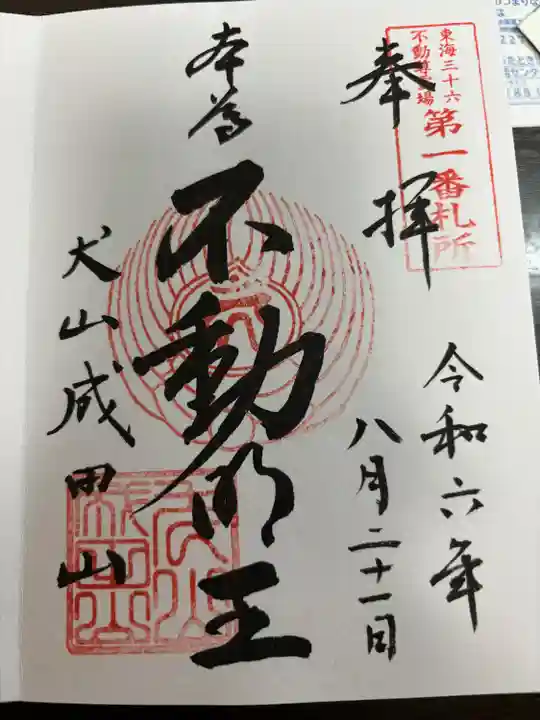 東海三十六
不動尊霊場
第一番札所
奉拝
令和六年
八月二十一日
本尊
不動明王
犬山成田山